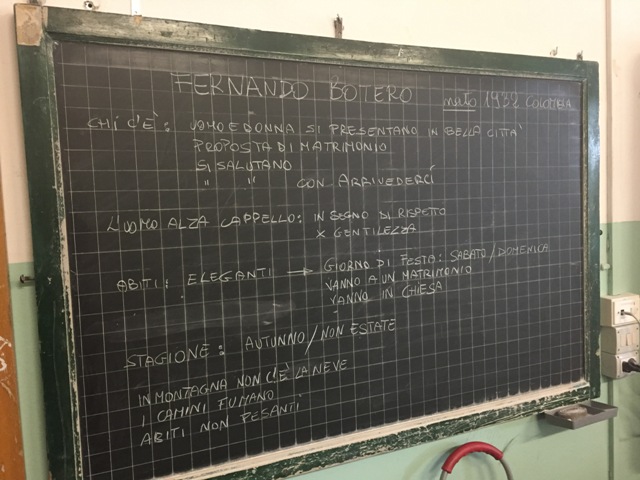 FERNANDO BOTERO nato 1932 COLOMBIA
CHI C'È: UOMO E DONNA SI PRESENTANO IN BELLA CITTA'
PROPOSTA DI MATRIMONIO
SI SALUTANO
" " CON ARRIVEDERCÍ
L'UOMO ALZA CAPPELLO: IN SEGNO DI RISPETTO
X GENTILEZZA
ABITI: ELEGANTI → GIORNO DI FESTA: SABATO/DOMENICA
VANNO A UN MATRIMONIO
VANNO IN CHIESA
STAGIONE: AUTUNNO/NON ESTATE
IN MONTAGNA NON C'È LA NEVE
I CAMINI FUMANO
ABITI NON PESANTI